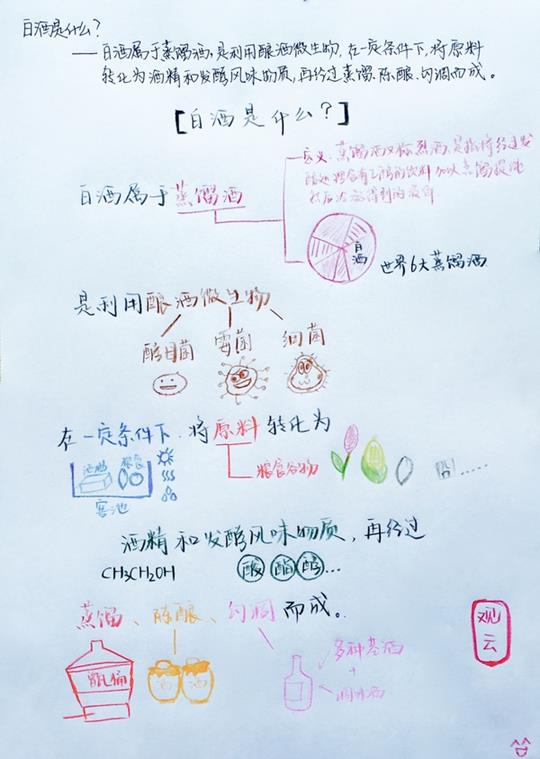 白酒是什么?
——白酒属于蒸馏酒,是利用酿酒微生物,在一定条件下,将原料
转化为酒精和发酵风味物质,再经过蒸馏、陈酿、勾调而成。
【白酒是什么?】
定义:蒸馏酒又称烈酒,是指将经过发
酵处理含有乙醇的饮料加以蒸馏提纯
然后
得到的
白酒属于蒸馏酒
白酒
世界6大蒸馏酒
是利用酿酒微生物
酵母菌 霉菌 细菌
在一定条件下,将原料转化为
酒醅 粮食
窖池
粮食谷物
......
酒精和发酵风味物质,再经过
CH3CH2OH
酸 酯 醇 ...
蒸馏、陈酿、勾调而成。
甑桶
酒 酒
多种基酒
+
调味酒
观云